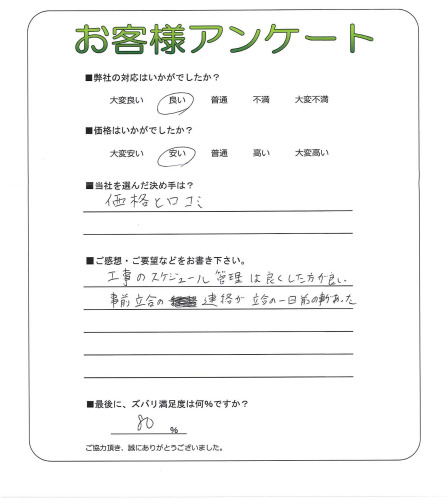 お客様アンケート
■弊社の対応はいかがでしたか？
大変良い 良い 普通 不満 大変不満
■価格はいかがでしたか？
大変安い 安い 普通 高い 大変高い
■当社を選んだ決め手は？
価格と口コミ
■ご感想・ご要望などをお書き下さい。
工事のスケジュール管理は良くした方が良い
事前立会の 連絡が 立会の一日前の事あった
■最後に、ズバリ満足度は何％ですか？
80 ％
ご協力頂き、誠にありがとうございました。